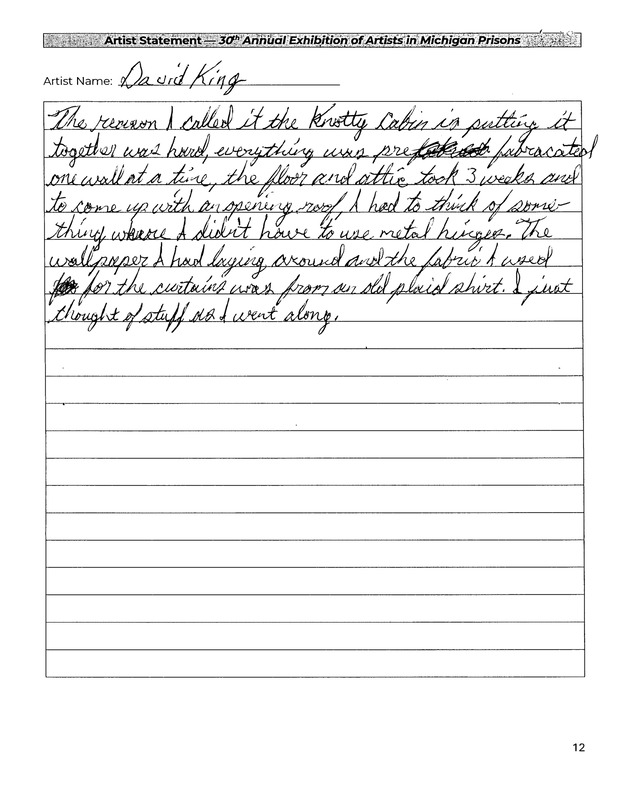 Artist Statement — 30th Annual Exhibition of Artists in Michigan Prisons
Artist Name: David King
The reason I called it the Knotty Cabin is putting it
together was hard, everything was pre fabracated
one wall at a time, the floor and attic took 3 weeks and
to come up with an opening roof, I had to think of some-
thing where I didn't have to use metal hinges. The
wallpaper I had laying around and the fabric I used
for the curtains was from an old plaid shirt. I just
thought of stuff as I went along.
12